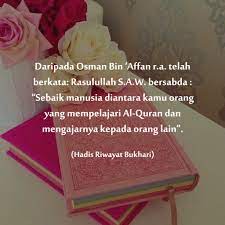 Daripada Osman Bin ‘Affan r.a. telah
berkata: Rasulullah S.A.W. bersabda :
“Sebaik manusia diantara kamu orang
yang mempelajari Al-Quran dan
mengajarnya kepada orang lain”.
(Hadis Riwayat Bukhari)